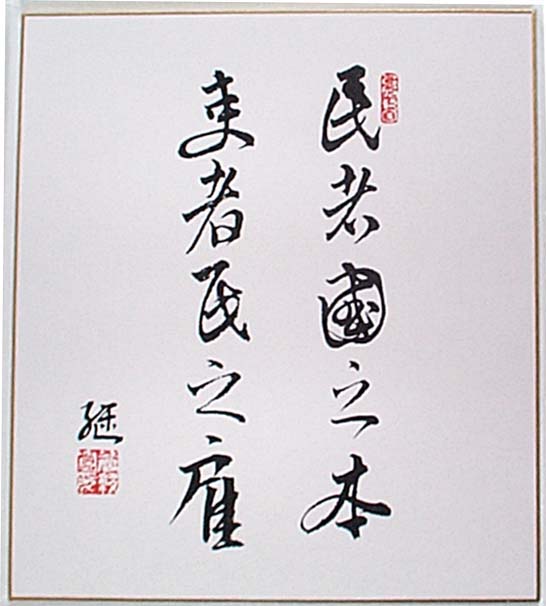 民者國之本
吏者民之雇
継